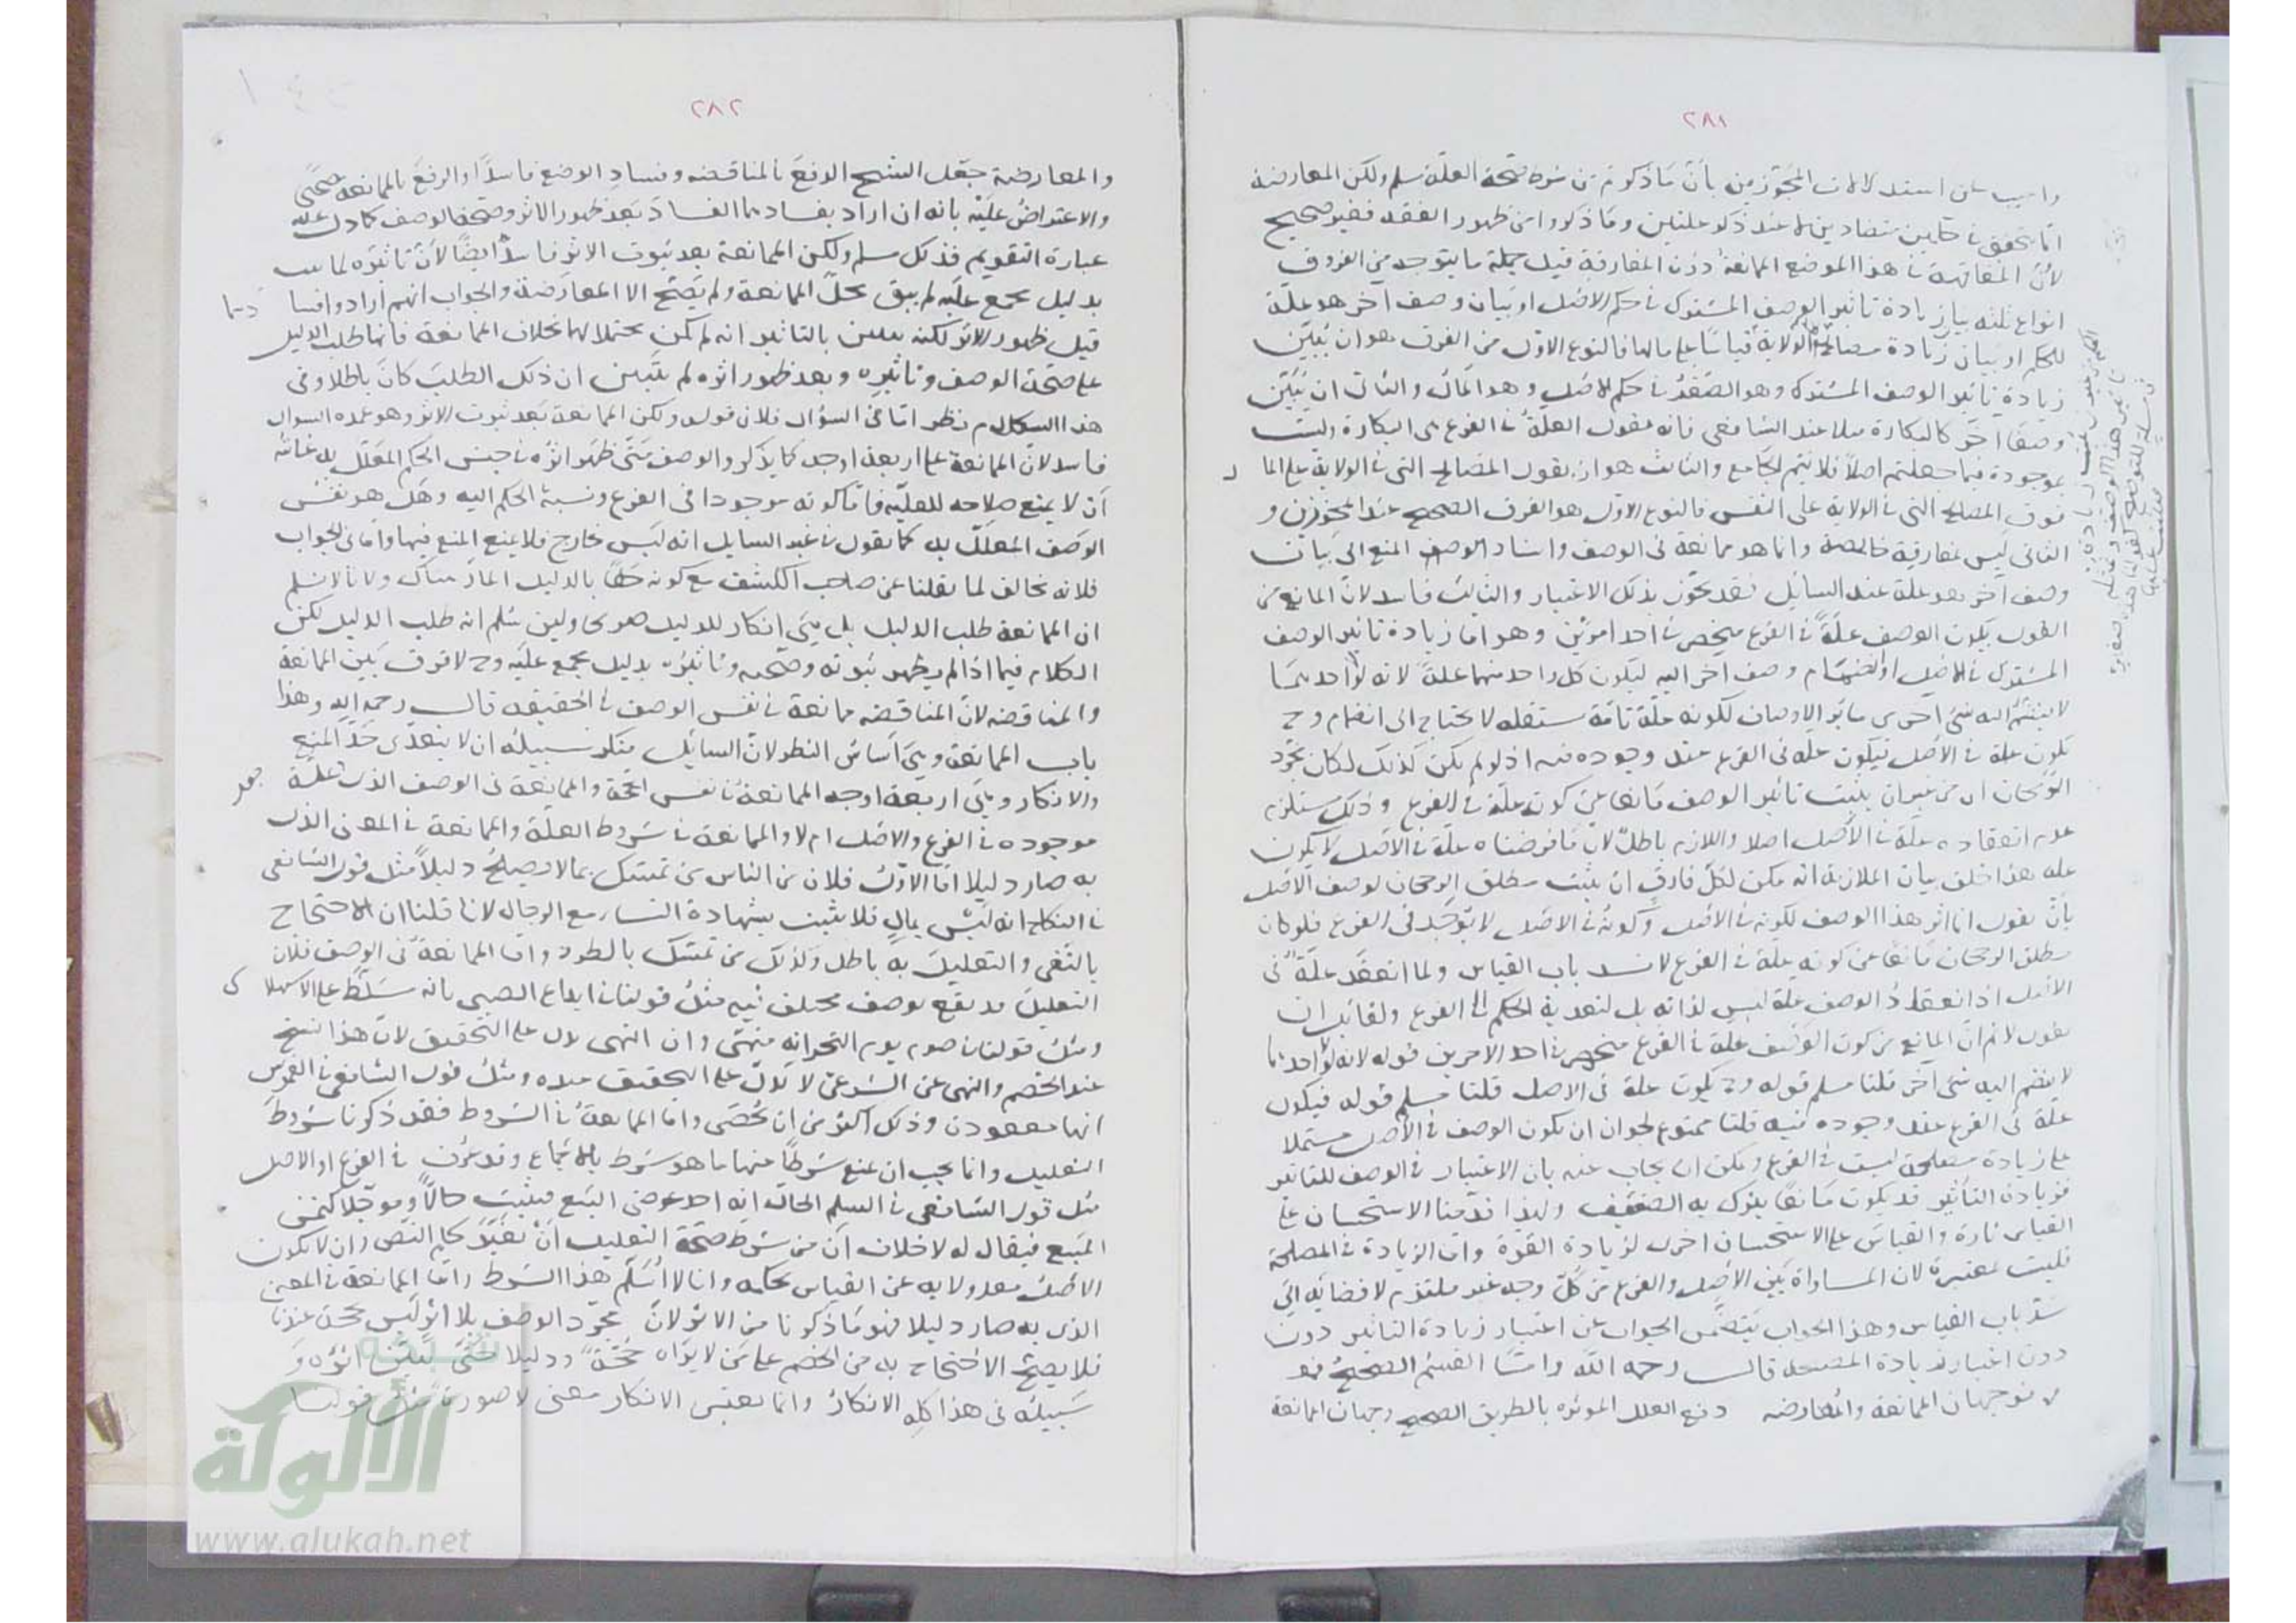 ٢٨١
واجيب عن استدلالات المجوزين بأن ما ذكرتم من شرط صحة العلة مسلم ولكن المعارضة
انما تتحقق في حكمين متضادين لا عند ذكر علتين وما ذكروا من ظهور الفقه فغير صحيح
لأن المفاقهة في هذا الموضع الممانعة دون المفارقة قيل جملة ما يتوجه من الفروق
انواع ثلثة بيان زيادة تاثير الوصف المشترك في حكم الاصل او بيان وصف آخر هو علة
للحكم او بيان زيادة مصالح الولاية قياسا على مالها فالنوع الاول من الفرق هو ان يبين
زيادة تاثير الوصف المشترك وهو الصغر في حكم الاصل وهو المال والثاني ان يبين
وصفا آخر كالبكارة مثلا عند الشافعي فانه يقول العلة في الفرع هي البكارة وليست
بموجودة فيما جعلتم اصلا فلا يتم الجامع والثالث هو ان يقول المصالح التي في الولاية على الما ل
فوق المصالح التي في الولاية على النفس فالنوع الاول هو الفرق الصحيح عند المجوزين و
الثاني ليس بمفارقة خالصة وانما هو ممانعة في الوصف واسناد المنع الى بيان
وصف آخر هو علة عند السائل فقد يجوز بذلك الاعتبار والثالث فاسد لان المانع من
القول بكون الوصف علة في الفرع منحصر في احد امرين وهو اما زيادة تاثير الوصف
المشترك في الاصل او انضمام وصف اخر اليه ليكون كل واحد منهما علة لانه لو احد بما
لا ينضم اليه شئ اخر من سائر الاوصاف لكونه علة تامة مستقلة لا يحتاج الى انضمام وح
يكون علة في الاصل فيكون علة في الفرع عند وجوده فيه اذ لو لم يكن كذلك لكان مجرد
الرجحان من غير ان يثبت تاثير الوصف مانعا عن كونه علة في الفرع وذلك يستلزم
عدم انعقاده علة في الاصل اصلا واللازم باطل لان ما فرضناه علة في الاصل لا يكون
علة هذا خلف بيان الملازمة انه يمكن لكل فارق ان يثبت مطلق الرجحان لوصف الاصل
بأن يقول انما اثر هذا الوصف لكونه في الاصل وكونه في الاصل لا يوجد في الفرع فلو كان
مطلق الرجحان مانعا عن كونه علة في الفرع لانسد باب القياس ولما انعقد علة في
الاصل اذ انعقاد الوصف علة ليس لذاته بل لتعدية الحكم الى الفرع ولقائل ان
يقول لا نم ان المانع من كون الوصف علة في الفرع منحصر في احد الامرين قوله لانه لو احد بما
لا ينضم اليه شئ آخر قلنا مسلم قوله وح يكون علة في الاصل قلنا مسلم قوله فيكون
علة في الفرع عند وجوده فيه قلنا ممنوع لجواز ان يكون الوصف في الاصل مشتملا
على زيادة مصلحة ليست في الفرع ويمكن ان يجاب عنه بان الاعتبار في الوصف للتاثير
فزيادة التأثير قد يكون مانعا يترك به الضعيف ولهذا قدمنا الاستحسان على
القياس تارة والقياس على الاستحسان اخرى لزيادة القوة واما الزيادة في المصلحة
فليست بمعتبرة لان المساواة بين الاصل والفرع من كل وجه غير ملتزم لافضائه الى
سد باب القياس وهذا الجواب يتضمن الجواب عن اعتبار زيادة التاثير دون
دون اعتبار زيادة المصلحة قال رحمه الله واما القسم الصحيح فهو
لا توجهان الممانعة والمعارضة دفع العلل المؤثرة بالطريق الصحيح وجهان الممانعة
٢٨٢
والمعارضة جعل الشيخ الدفع بالمناقضة وفساد الوضع فاسدا والدفع بالممانعة صحيحا
والاعتراض عليه بانه ان اراد بفسادهما الفساد بعد ظهور الاثر وصحة الوصف كما دل عليه
عبارة التقويم فذلك مسلم ولكن الممانعة بعد ثبوت الاثر فاسد ايضا لأن تاثيره لما ثبت
بدليل مجمع عليه لم يبق محل الممانعة ولم يصح الا المعارضة والجواب انهم ارادوا فسا دهما
قبل ظهور الاثر لكنه يتبين بالتاثير انه لم يكن محتملا لهما بخلاف الممانعة فانها طلب الدليل
على صحة الوصف وتاثيره وبعد ظهور اثره لم يتبين ان ذلك الطلب كان باطلا وفي
هذا الكلام نظر اما في السؤال فلان قوله ولكن الممانعة بعد ثبوت الاثر وهو عمدة السوال
فاسد لان الممانعة على اربعة اوجه كما يذكر والوصف متى ظهر اثره في جنس الحكم المعلل به غايته
أن لا يمنع صلاحه للعلية فاما كونه موجودا في الفرع ونسبة الحكم اليه وهل هو نفس
الوصف المعلل به كما يقول في غير السبيلين انه ليس بخارج فلا يمنع المنع فيها واما في الجواب
فلانه مخالف لما نقلنا عن صاحب الكشف مع كونه حقا بالدليل المار هناك ولانا لا نسلم
ان الممانعة طلب الدليل بل هي انكار للدليل صريحا ولئن سلم انه طلب الدليل لكن
الكلام فيما اذا لم يظهر ثبوته وصحته وتاثيره بدليل مجمع عليه وح لا فرق بين الممانعة
والمناقضة لان المناقضة ممانعة في نفس الوصف في الحقيقة قال رحمه الله وهذا
باب الممانعة وهي أساس النظر لان السايل منكر سبيله ان لا يتعدى حد المنع
والانكار وهي اربعة اوجه الممانعة في نفس الحجة والممانعة في الوصف الذي جعل علة
موجودة في الفرع والاصل ام لا والممانعة في شروط العلة والممانعة في المعنى الذي
به صار دليلا اما الاول فلان من الناس من تمسك بما لا يصلح دليلا مثل قول الشافعي
في النكاح انه ليس بمال فلا يثبت بشهادة النساء مع الرجال لانا قلنا ان الاحتجاج
بالنفي والتعليل به باطل وكذلك من تمسك بالطرد واما الممانعة في الوصف فلان
التعليل قد يقع بوصف مختلف فيه مثل قولنا في ايداع الصبي بانه سلط على الاستهلا ك
ومثل قولنا في صوم يوم النحر انه منهي وان النهي يدل على التحقيق لان هذا نسخ
عند الخصم والنهي عن الشرعي لا يدل على التحقيق عنده ومثل قول الشافعي في الغموس
انها معقودة وذلك اكثر من ان يحصى واما الممانعة في الشروط فقد ذكرنا شروط
التعليل وانما يجب ان يمنع شرطا منها ما هو شرط بالاجماع وقد عرف في الفرع او الاصل
مثل قول الشافعي في السلم الحال انه احد عوضي البيع فيثبت حالا ومؤجلا كثمن
المبيع فيقال له لا خلاف ان من شرط صحة التعليل أن لا يغير حكم النص وان لا يكون
الاصل معدولا به عن القياس بحكمه وانا لا أسلم هذا الشرط واما الممانعة في المعنى
الذي به صار دليلا فهو ما ذكرنا من الاثر لان مجرد الوصف بلا اثر ليس بحجة عندنا
فلا يصح الاحتجاج به من الخصم على من لا يراه حجة ودليلا حتى يبين اثره و
سبيله في هذا كله الانكار وانما يعتبر الانكار معنى لا صورة مثل قولنا
شبكة
الألوكة
www.alukah.net